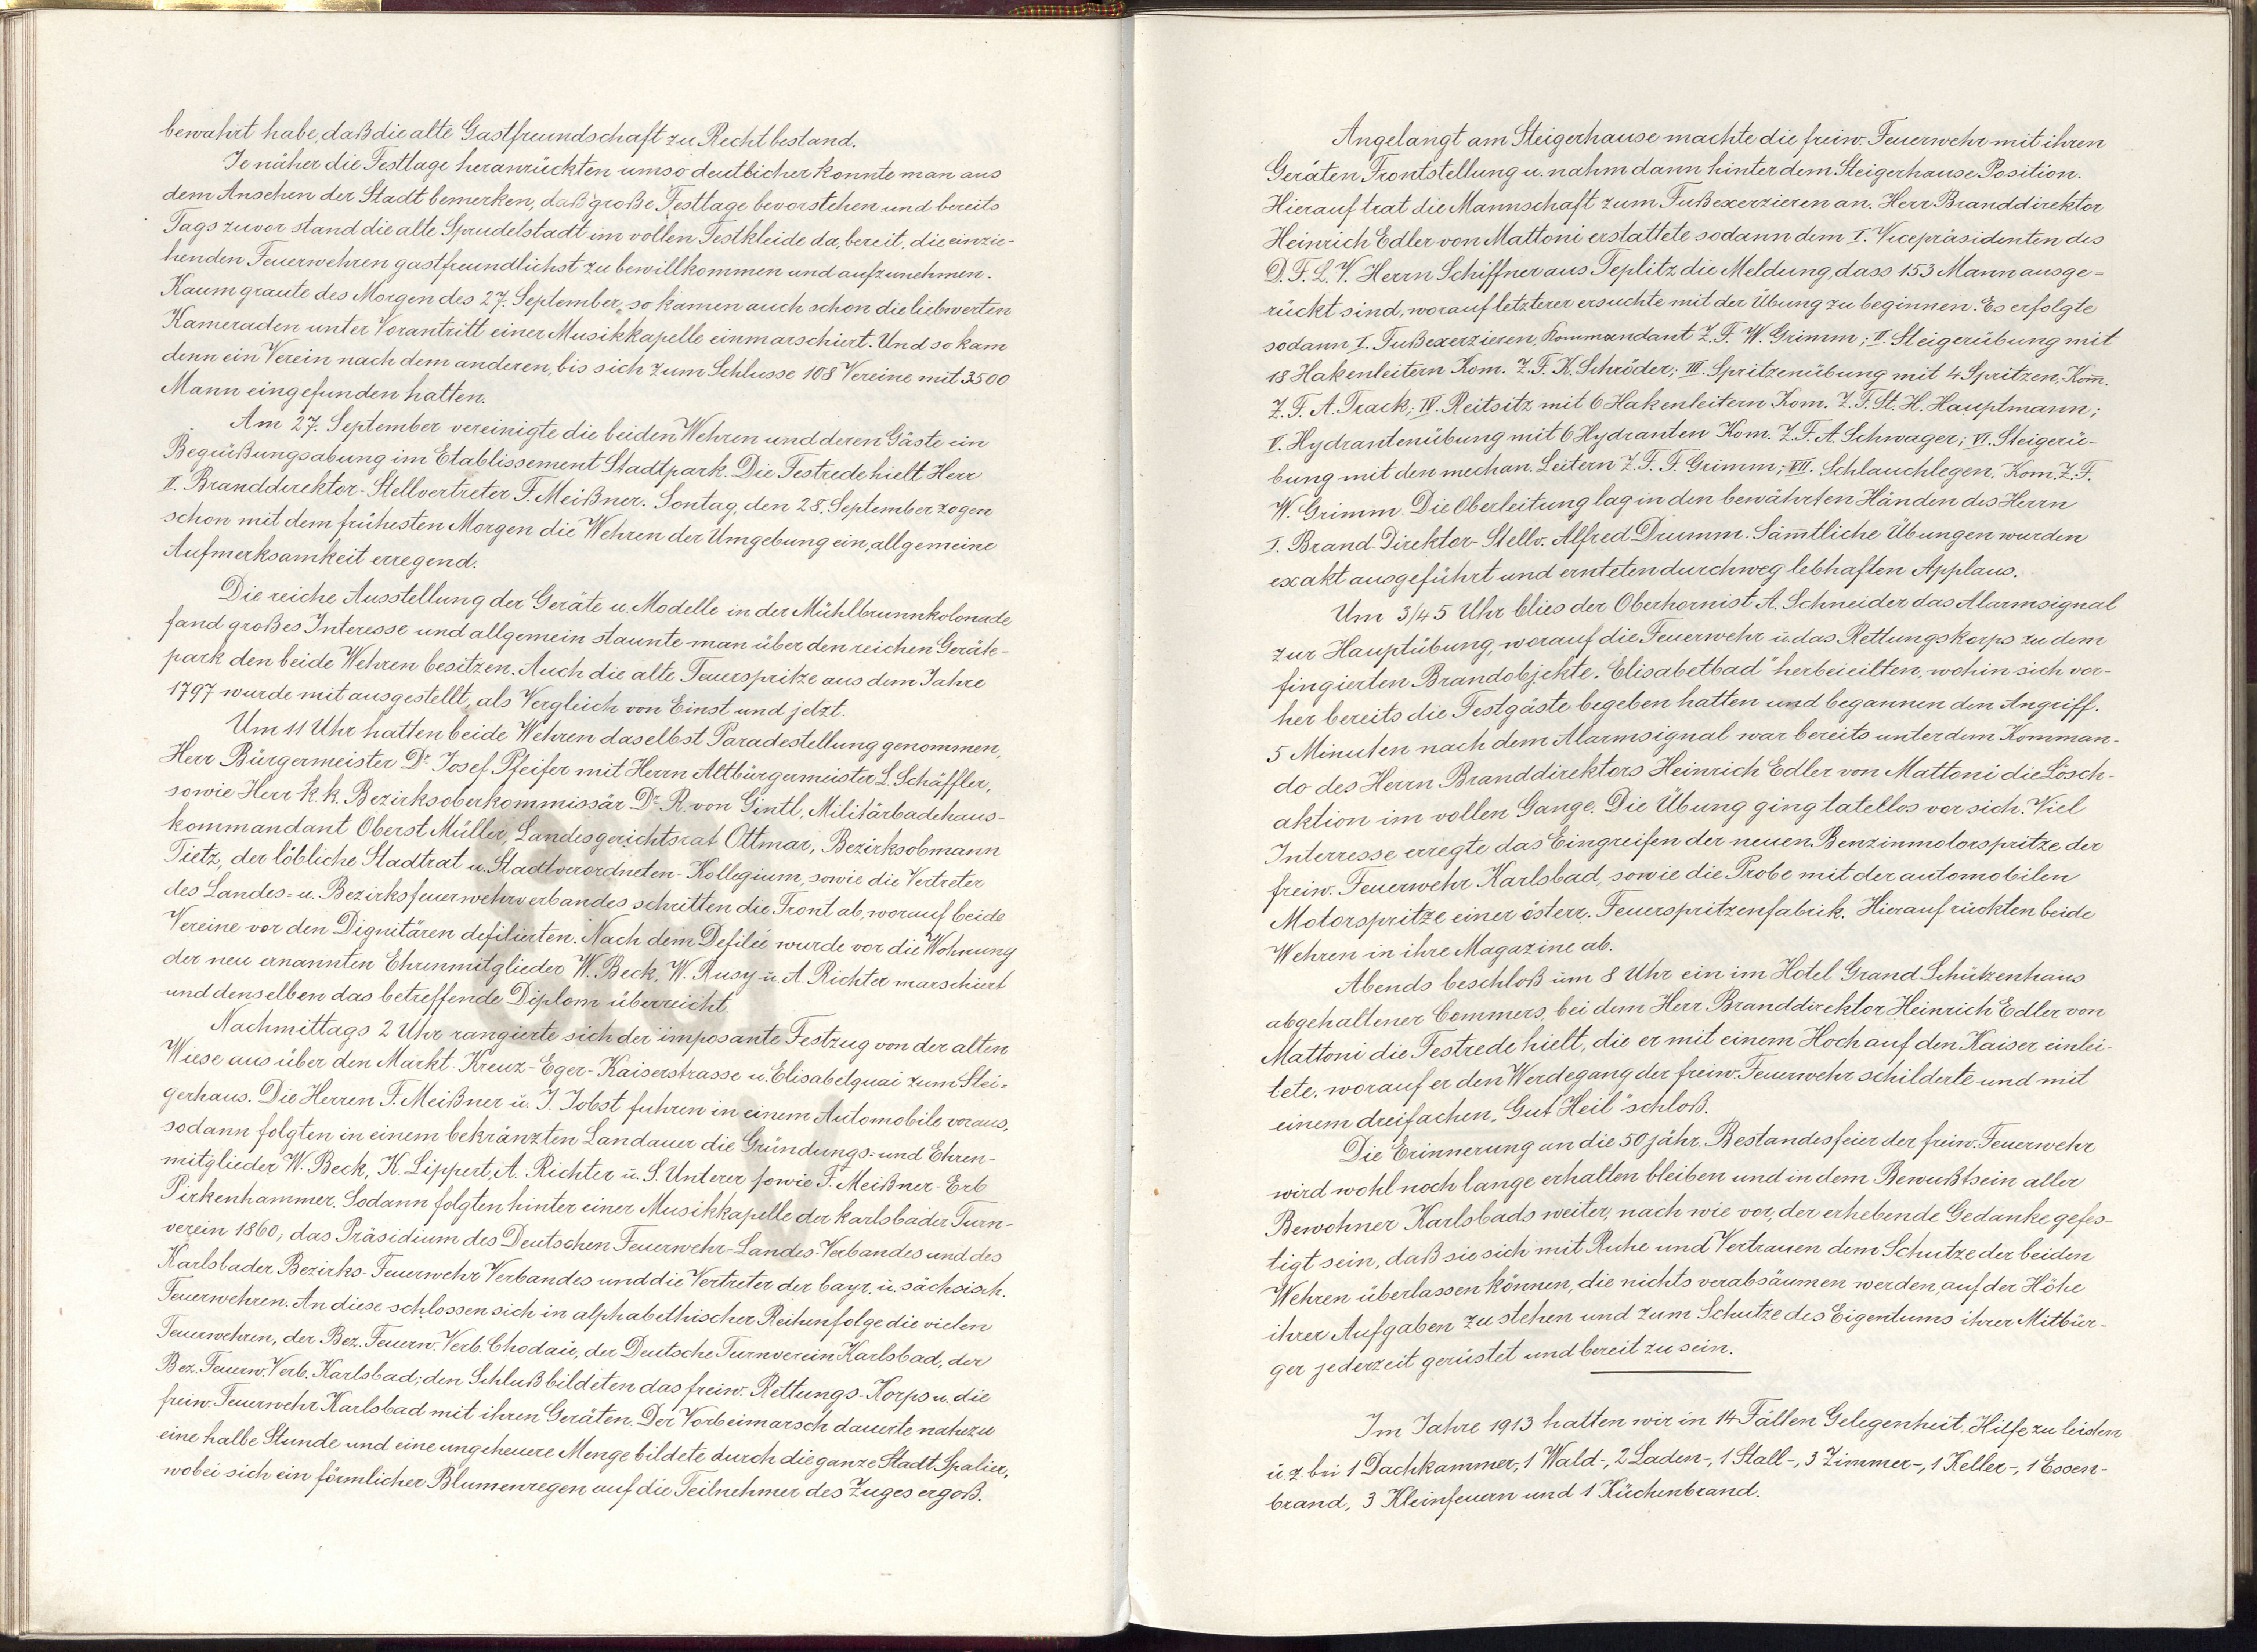 bewahrt habe, daß die alte Gastfreundschaft zu Recht bestand.
Je näher die Festtage heranrückten umso deutlicher konnte man aus
dem Ansehen der Stadt bemerken, daß große Festtage bevorstehen und bereits
Tags zuvor stand die alte Sprudelstadt im vollen Festkleide da, bereit, die einzie-
henden Feuerwehren gastfreundlichst zu bewillkommen und aufzunehmen.
Kaum graute des Morgen des 27. September, so kamen auch schon die liebwerten
Kameraden unter Vorantritt einer Musikkapelle einmarschiert. Und so kam
denn ein Verein nach dem anderen, bis sich zum Schlusse 108 Vereine mit 3500
Mann eingefunden hatten.
Am 27. September vereinigte die beiden Wehren und deren Gäste ein
Begrüßungsabung im Etablissement Stadtpark. Die Festrede hielt Herr
II. Branddirektor-Stellvertreter F. Meißner. Sontag, den 28. September zogen
schon mit dem frühesten Morgen die Wehren der Umgebung ein, allgemeine
Aufmerksamkeit erregend.
Die reiche Ausstellung der Geräte u. Modelle in der Mühlbrunnkolonade
fand großes Interesse und allgemein staunte man über den reichen Geräte-
park den beide Wehren besitzen. Auch die alte Feuerspritze aus dem Jahre
1797 wurde mit ausgestellt, als Vergleich von Einst und jetzt.
Um 11 Uhr hatten beide Wehren daselbst Paradestellung genommen,
Herr Bürgermeister Dr. Josef Pfeifer mit Herrn Altbürgermeister L. Schäffler,
sowie Herr k.k. Bezirksoberkommissär Dr. R. von Gintl, Militärbadehaus-
kommandant Oberst Müller, Landesgerichtsrat Ottmar, Bezirksobmann
Tietz, der löbliche Stadtrat u. Stadtverordneten-Kollegium, sowie die Vertreter
des Landes- u. Bezirksfeuerwehrverbandes schritten die Front ab, worauf beide
Vereine vor den Dignitären defilierten. Nach dem Defilée wurde vor die Wohnung
der neu ernannten Ehrenmitglieder W. Beck, W. Rusy u. A. Richter marschiert
und denselben das betreffende Diplom überreicht.
Nachmittags 2 Uhr rangierte sich der imposante Festzug von der alten
Wiese aus über den Markt-Kreuz-Eger-Kaiserstrasse u. Elisabetquai zum Stei-
gerhaus. Die Herren F. Meißner u. J. Jobst fuhren in einem Automobile voraus,
sodann folgten in einem bekränzten Landauer die Gründungs- und Ehren-
mitglieder W. Beck, K. Lippert, A. Richter u. S. Unterer sowie F. Meißner-Erb
Pirkenhammer. Sodann folgten hinter einer Musikkapelle der Karlsbader Turn-
verein 1860, das Präsidium des Deutschen Feuerwehr-Landes-Verbandes und des
Karlsbader Bezirks-Feuerwehr Verbandes und die Vertreter der bayr. u. sächsisch.
Feuerwehren. An diese schlossen sich in alphabethischer Reihenfolge die vielen
Feuerwehren, der Bez. Feuerw. Verb. Chodau, der Deutsche Turnverein Karlsbad, der
Bez. Feuerw. Verb. Karlsbad; den Schluß bildeten das freiw. Rettungs-Korps u. die
freiw. Feuerwehr Karlsbad mit ihren Geräten. Der Vorbeimarsch dauerte nahezu
eine halbe Stunde und eine ungeheuere Menge bildete durch die ganze Stadt Spalier,
wobei sich ein förmlicher Blumenregen auf die Teilnehmer des Zuges ergoß.
Angelangt am Steigerhause machte die freiw. Feuerwehr mit ihren
Geräten Frontstellung u. nahm dann hinter dem Steigerhause Position.
Hierauf trat die Mannschaft zum Fußexerzieren an. Herr Branddirektor
Heinrich Edler von Mattoni erstattete sodann dem I. Vicepräsidenten des
D. F. L. V. Herrn Schiffner aus Teplitz die Meldung, dass 153 Mann ausge-
rückt sind, worauf letzterer ersuchte mit der Übung zu beginnen. Es erfolgte
sodann I. Fußexerzieren, Kommandant Z. F. W. Grimm; II. Steigerübung mit
18 Hakenleitern Kom. Z. F. K. Schröder; III. Spritzenübung mit 4 Spritzen, Kom̅.
Z. F. A. Track; IV. Reitsitz mit 6 Hakenleitern Kom. Z. F. St. H. Hauptmann;
V. Hydrantenübung mit 6 Hydranten Kom. Z. F. A. Schwager; VI. Steigerü-
bung mit den mechan. Leitern Z. F. F. Grimm; VII. Schlauchlegen, Kom. Z. F.
W. Grimm. Die Oberleitung lag in den bewährten Händen des Herrn
I. Brand Direktor-Stellv. Alfred Drumm. Säm̅tliche Übungen wurden
exakt ausgeführt und ernteten durchweg lebhaften Applaus.
Um 3/45 Uhr blies der Oberhornist A. Schneider das Alarmsignal
zur Hauptübung, worauf die Feuerwehr u. das Rettungskorps zu dem
fingierten Brandobjekte „Elisabetbad" herbeieilten, wohin sich vor-
her bereits die Festgäste begeben hatten und begannen den Angriff.
5 Minuten nach dem Alarmsignal war bereits unter dem Komman-
do des Herrn Branddirektors Heinrich Edler von Mattoni die Lösch-
aktion im vollen Gange. Die Übung ging tatellos vor sich. Viel
Interresse erregte das Eingreifen der neuen Benzinmotorspritze der
freiw. Feuerwehr Karlsbad, sowie die Probe mit der automobilen
Motorspritze einer österr. Feuerspritzenfabrik. Hierauf rückten beide
Wehren in ihre Magazine ab.
Abends beschloß um 8 Uhr ein im Hotel Grand Schützenhaus
abgehaltener Commers, bei dem Herr Branddirektor Heinrich Edler von
Mattoni die Festrede hielt, die er mit einem Hoch auf den Kaiser einlei-
tete, worauf er den Werdegang der freiw. Feuerwehr schilderte und mit
einem dreifachen „Gut Heil" schloß.
Die Erinnerung an die 50 jähr. Bestandesfeier der freiw. Feuerwehr
wird wohl noch lange erhalten bleiben und in dem Bewußtsein aller
Bewohner Karlsbads weiter, nach wie vor, der erhebende Gedanke gefes-
tigt sein, daß sie sich mit Ruhe und Vertrauen dem Schutze der beiden
Wehren überlassen können, die nichts verabsäumen werden, auf der Höhe
ihrer Aufgaben zu stehen und zum Schutze des Eigentums ihrer Mitbür-
ger jederzeit gerüstet und bereit zu sein.
Im Jahre 1913 hatten wir in 14 Fällen Gelegenheit, Hilfe zu leisten
u. z. bei 1 Dachkammer, 1 Wald-, 2 Laden-, 1 Stall-, 3 Zimmer-, 1 Keller-, 1 Essen-
brand, 3 Kleinfeuern und 1 Küchenbrand.